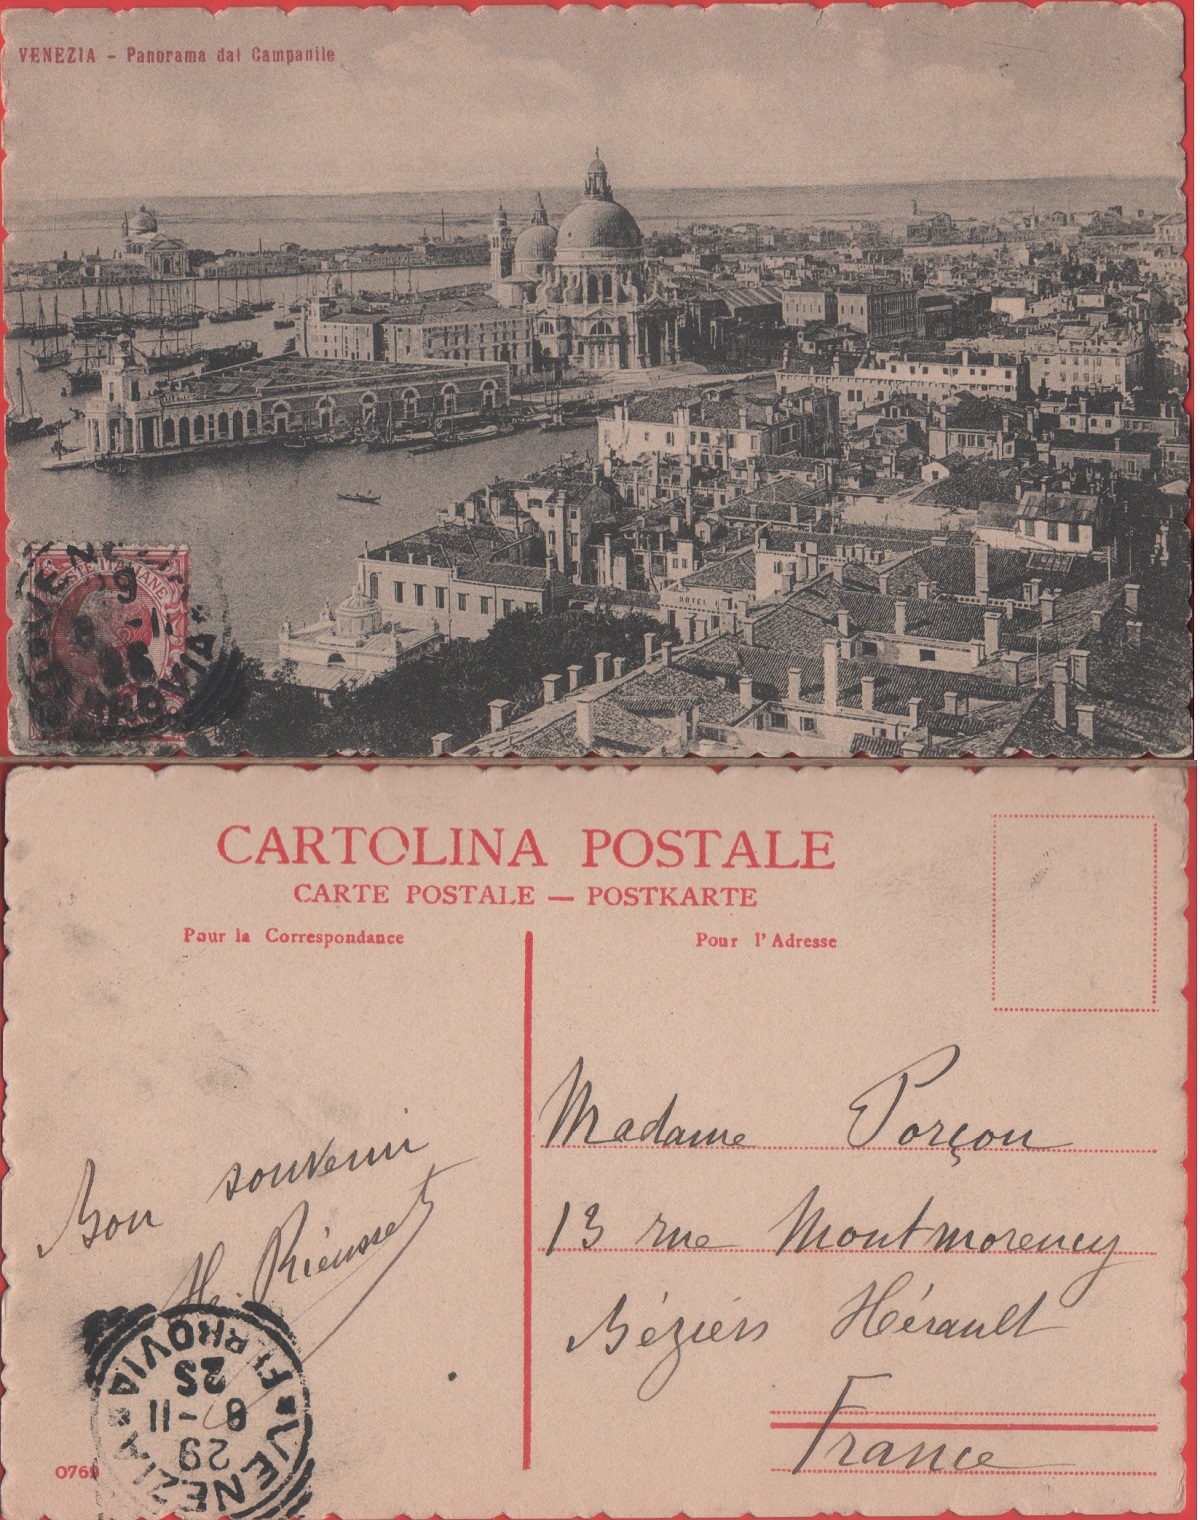 VENEZIA - Panorama dal Campanile
HOTEL
POSTE ITALIANE
CARTOLINA POSTALE
CARTE POSTALE — POSTKARTE
Pour la Correspondance
Pour l'Adresse
Madame Porçon
13 rue Montmorency
Béziers Hérault
France
Bon souvenir
H. Riéusset
VENEZIA
FERROVIA
8-11
29
0769